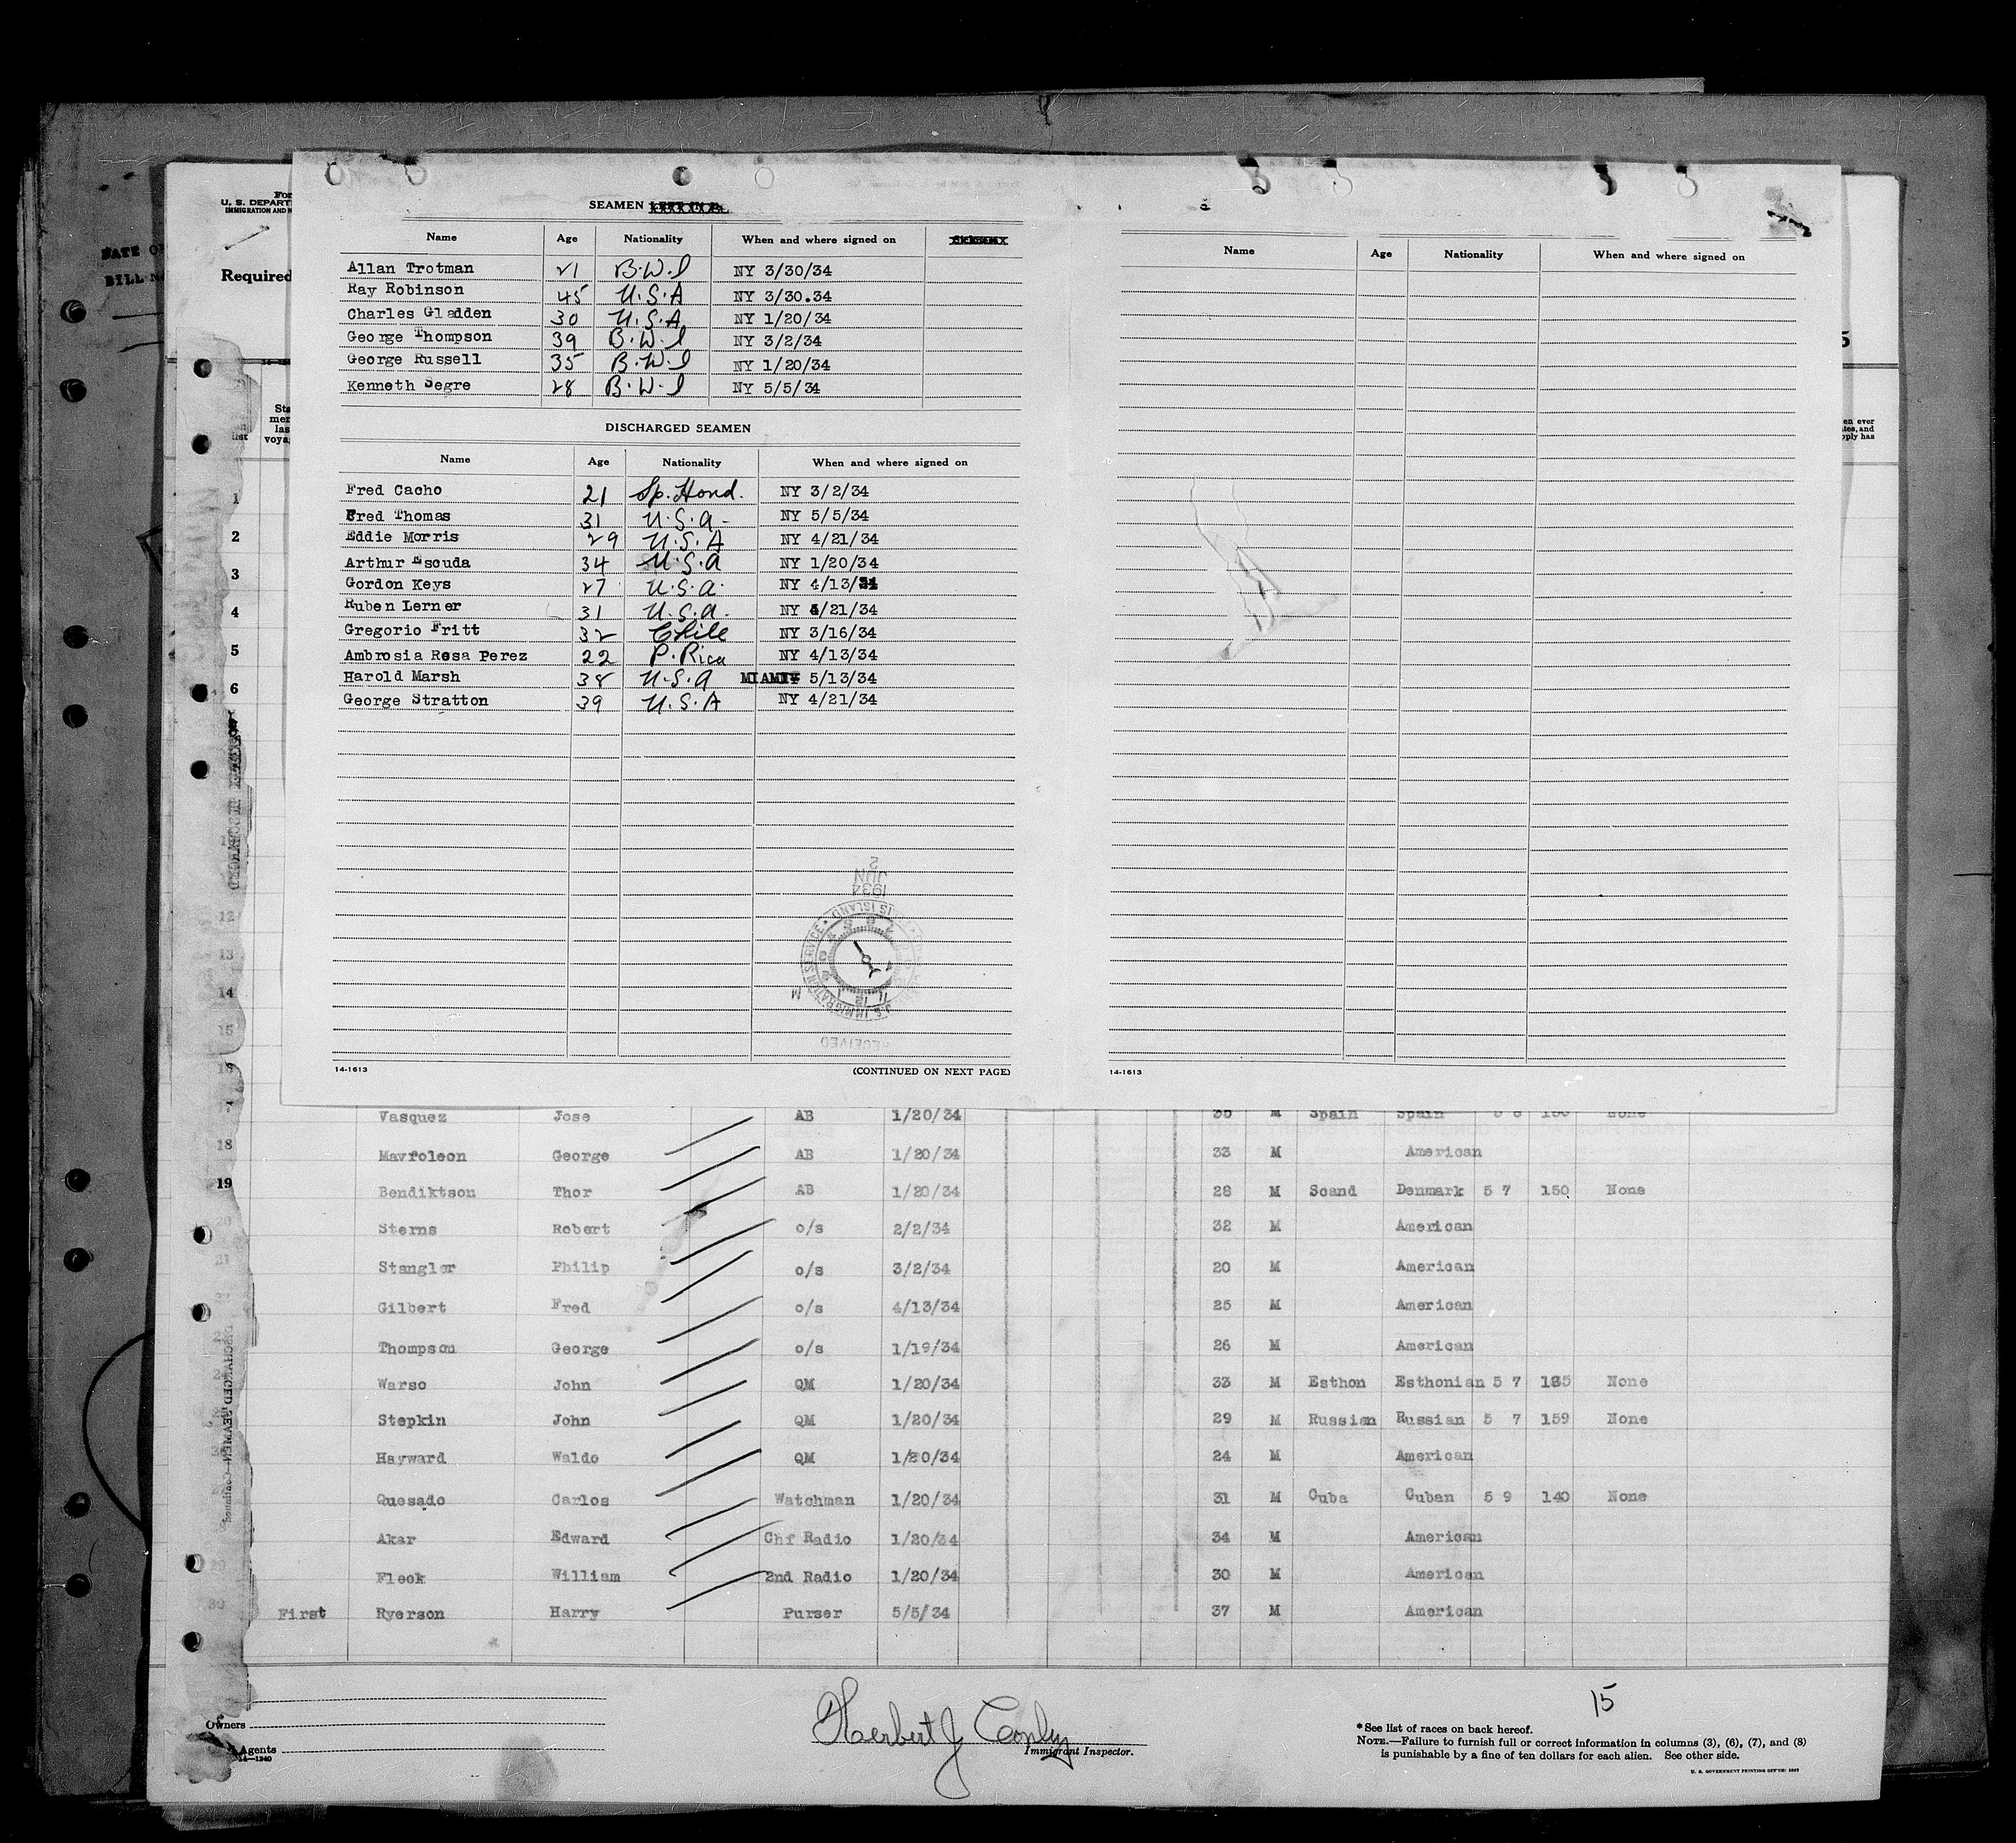 For
U. S. DEPART
IMMIGRATION AND N
DATE O
BILL N
Required
SEAMEN
Name Age Nationality When and where signed on
Allan Trotman 21 B.W.I NY 3/30/34
Ray Robinson 45 U.S.A NY 3/30.34
Charles Gladden 30 U.S.A NY 1/20/34
George Thompson 39 B.W.I NY 3/2/34
George Russell 35 B.W.I NY 1/20/34
Kenneth Segre 28 B.W.I NY 5/5/34
DISCHARGED SEAMEN
Name Age Nationality When and where signed on
Fred Cacho 21 Sp. Hond. NY 3/2/34
Fred Thomas 31 U.S.a- NY 5/5/34
Eddie Morris 29 U.S.A NY 4/21/34
Arthur Escuda 34 U.S.a NY 1/20/34
Gordon Keys 27 U.S.a. NY 4/13/34
Ruben Lerner 31 U.S.a. NY 4/21/34
Gregorio Fritt 32 Chile NY 3/16/34
Ambrosia Rosa Perez 22 P. Rica NY 4/13/34
Harold Marsh 38 U.S.a MIAMI 5/13/34
George Stratton 39 U.S.A NY 4/21/34
RECEIVED
U.S. IMMIGRATION SERVICE
IS ISLAND
1934
JUN
2
M
14-1613 (CONTINUED ON NEXT PAGE)
Name Age Nationality When and where signed on
14-1613
Sta
mer
las
voya
list
en ever
ates, and
pply has
5
1
2
3
4
5
6
12
13
14
15
16
Vasquez Jose AB 1/20/34 35 M Spain Spain None
18 Mavroleon George AB 1/20/34 33 M American
19 Bendiktson Thor AB 1/20/34 28 M Scand Denmark 5 7 150 None
20 Sterns Robert o/s 2/2/34 32 M American
21 Stangler Philip o/s 3/2/34 20 M American
Gilbert Fred o/s 4/13/34 25 M American
Thompson George o/s 1/19/34 26 M American
24 Warso John QM 1/20/34 33 M Esthon Esthonian 5 7 185 None
Stepkin John QM 1/20/34 29 M Russian Russian 5 7 159 None
Hayward Waldo QM 1/20/34 24 M American
Quesado Carlos Watchman 1/20/34 31 M Cuba Cuban 5 9 140 None
Akar Edward Chf Radio 1/20/34 34 M American
29 Fleck William 2nd Radio 1/20/34 30 M American
30 First Ryerson Harry Purser 5/5/34 37 M American
DISCHARGED SEAMEN—Continued
Owners
Agents
14—1240
Herbert J Conley
Immigrant Inspector.
15
* See list of races on back hereof.
NOTE.—Failure to furnish full or correct information in columns (3), (6), (7), and (8)
is punishable by a fine of ten dollars for each alien. See other side.
U. S. GOVERNMENT PRINTING OFFICE: 1933